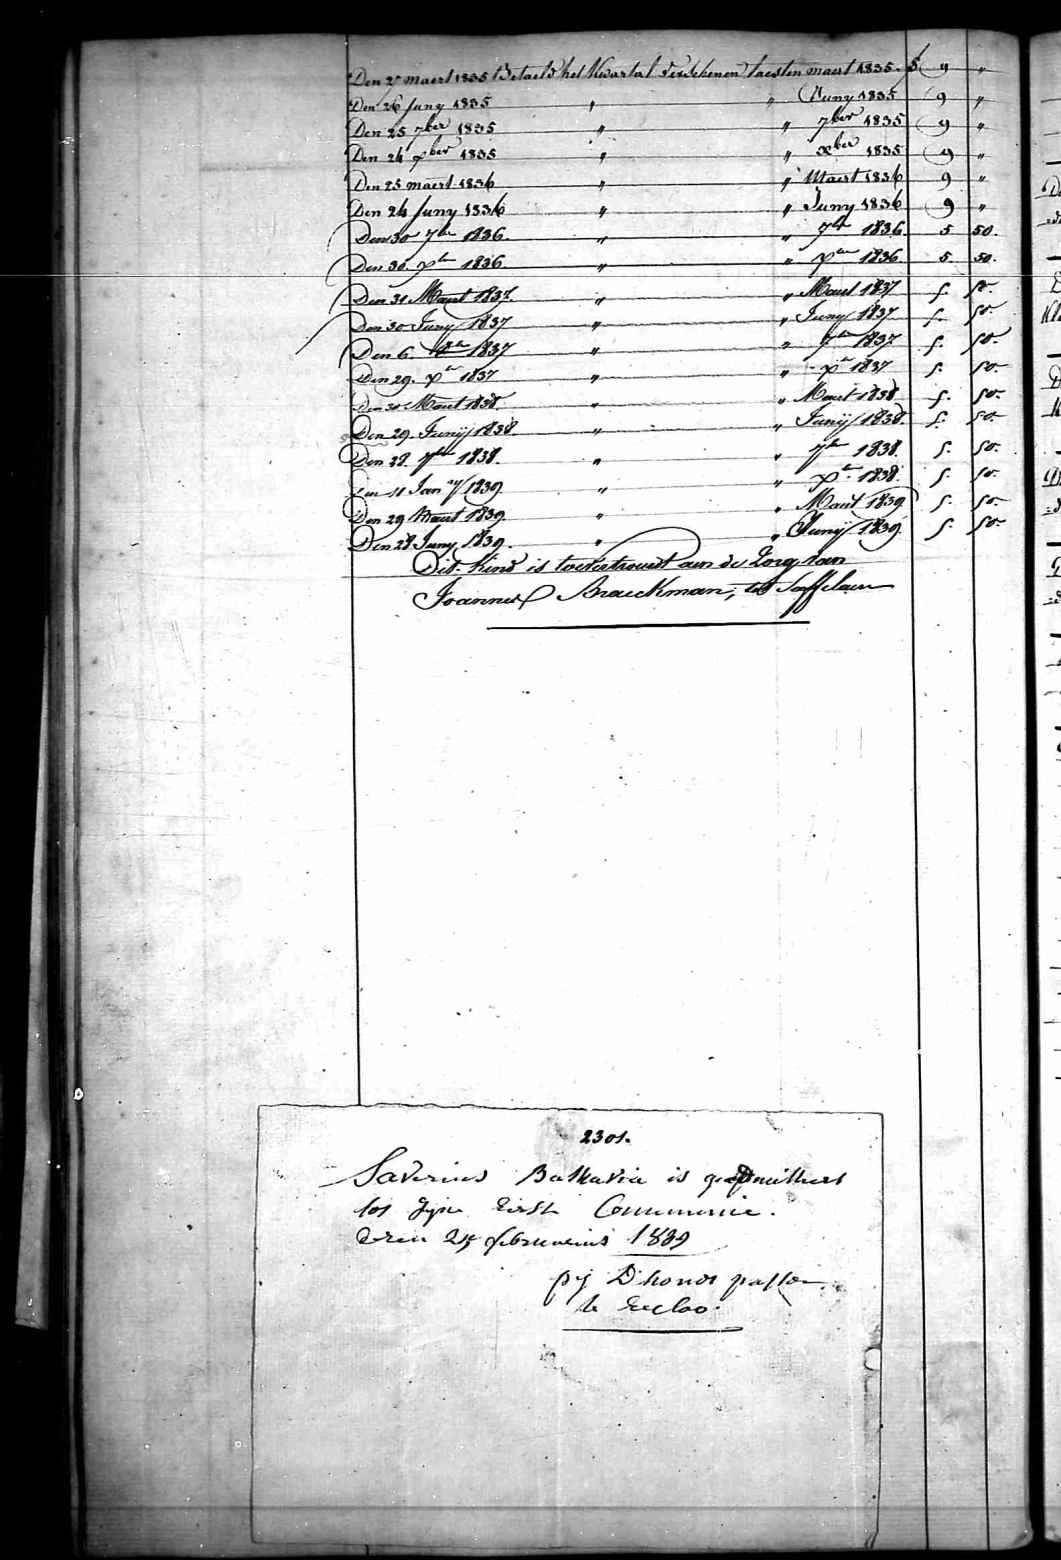 Den 25 maert 1835 Betaeld het Kwartal verschenen laesten maert 1835. f 9 "
Den 26 Juny 1835 " " Juny 1835 9 "
Den 25 7ber 1835 " " 7ber 1835 9 "
Den 24 xber 1835 " " xber 1835 9 "
Den 25 maert 1836 " " Maert 1836 9 "
Den 24 Juny 1836 " " Juny 1836 9 "
Den 30 7ber 1836. " " 7ber 1836 5 50.
Den 30. xber 1836. " " xber 1836 5. 50.
Den 31 Maert 1837. " " Maert 1837 5. 50.
Den 30 Juny 1837 " " Juny 1837 5. 50.
Den 6. 1837 " " 7ber 1837 5. 50.
Den 29. xber 1837 " " xber 1837 5. 50.
Den 30 Maert 1838. " " Maert 1838 5. 50.
Den 29. Junij 1838 " " Junij 1838. 5. 50.
Den 28. 7ber 1838. " " 7ber 1838. 5. 50.
Den 11 Jany 1839 " " xber 1838. 5. 50.
Den 29 Maert 1839. " " Maert 1839 5. 50.
Den 28 Juny 1839. " " Junij 1839. 5. 50.
Dit Kind is toevertrouwt aen de Zorg van
Joannes Braeckman, tot Saffelaere
2301.
Saverius Battavia is geadmitteert
tot zyne eerste Communie.
dezen 25 februarius 1839
pij D'hondt pastor
te Eecloo.